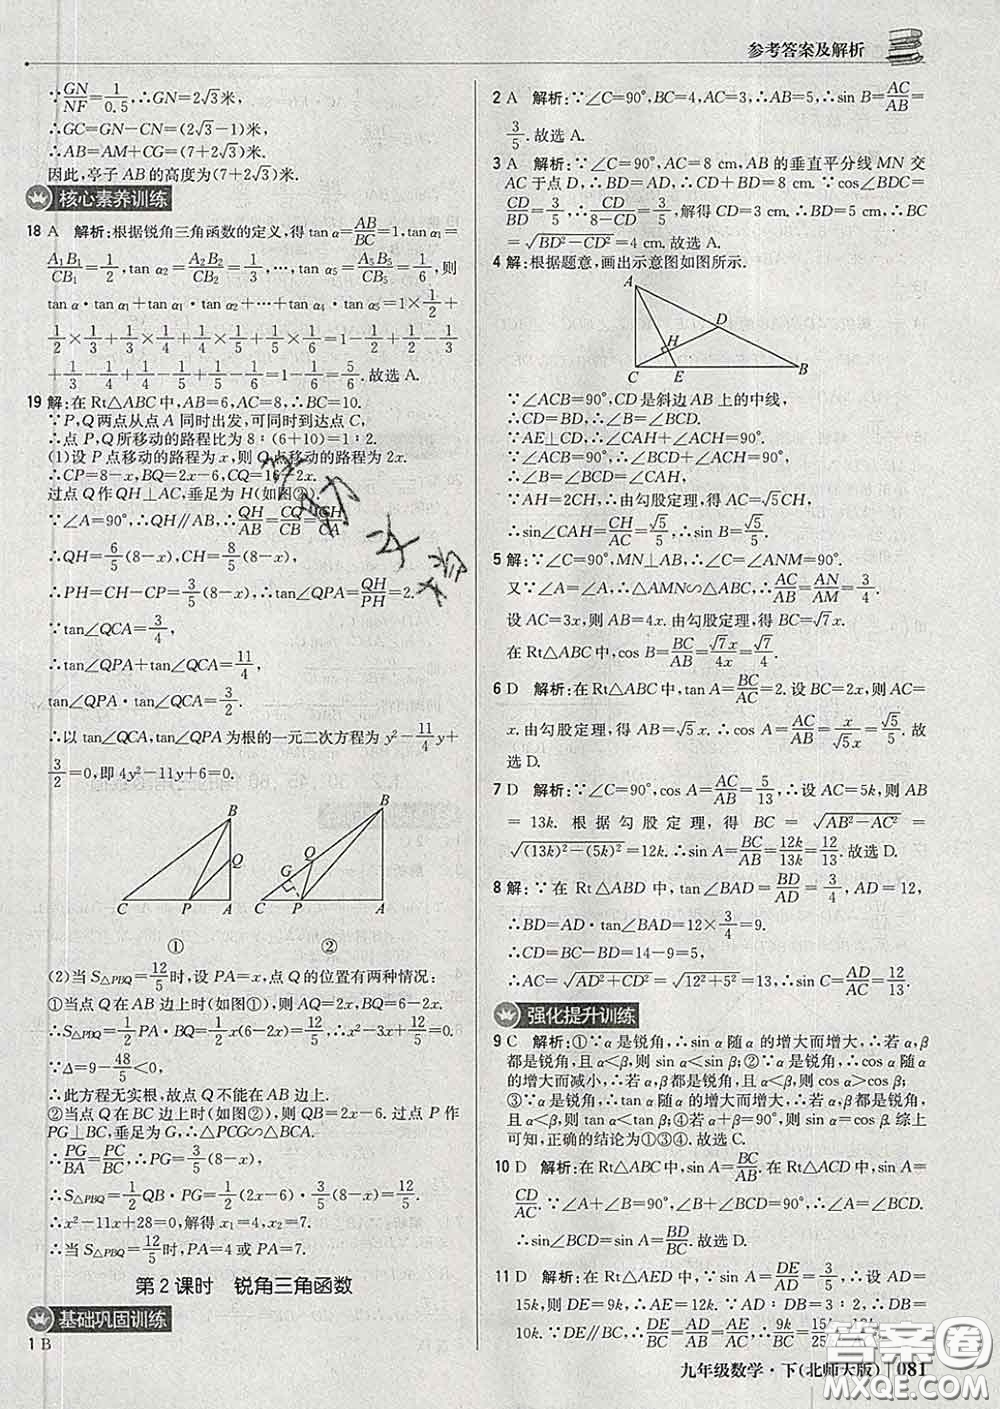 参考答案及解析
∵GN/NF=1/0.5,∴GN=2√3米,
∴GC=GN-CN=(2√3-1)米,
∴AB=AM+CG=(7+2√3)米.
因此,亭子AB的高度为(7+2√3)米.
核心素养训练
18 A 解析:根据锐角三角函数的定义,得tan α=AB/BC=1,tan α₁=
A₁B₁/CB₁=1/2,tan α₂=A₂B₂/CB₂=1/3,…,tan α₅=A₅B₅/CB₅=1/6,则
tan α·tan α₁+tan α₁·tan α₂+…+tan α₄·tan α₅=1×1/2+
1/2×1/3+1/3×1/4+1/4×1/5+1/5×1/6=1-1/2+1/2-
1/3+1/3-1/4+1/4-1/5+1/5-1/6=1-1/6=5/6.故选A.
19 解:在Rt△ABC中,AB=6,AC=8,∴BC=10.
∵P,Q两点从点A同时出发,可同时到达点C,
∴点P,Q所移动的路程比为8∶(6+10)=1∶2.
(1)设P点移动的路程为x,则Q点移动的路程为2x.
∴CP=8-x,BQ=2x-6,CQ=16-2x.
过点Q作QH⊥AC,垂足为H(如图②).
∵∠A=90°,∴QH∥AB,∴QH/AB=CQ/CB=CH/CA
∴QH=6/5(8-x),CH=8/5(8-x),
∴PH=CH-CP=3/5(8-x),∴tan∠QPA=QH/PH=2.
∵tan∠QCA=3/4,
∴tan∠QPA+tan∠QCA=11/4,
tan∠QPA·tan∠QCA=3/2.
∴以tan∠QCA,tan∠QPA为根的一元二次方程为y²-11/4y+
3/2=0,即4y²-11y+6=0.
B Q C P A
B Q G C P A
① ②
(2)当S△PBQ=12/5时,设PA=x,点Q的位置有两种情况:
①当点Q在AB边上时(如图①),则AQ=2x,BQ=6-2x.
∴S△PBQ=1/2PA·BQ=1/2x(6-2x)=12/5,∴x²-3x+12/5=0.
∵Δ=9-48/5<0,
∴此方程无实根,故点Q不能在AB边上;
②当点Q在BC边上时(如图②),则QB=2x-6.过点P作
PG⊥BC,垂足为G,∴△PCG∽△BCA.
∴PG/BA=PC/BC,∴PG=3/5(8-x),
∴S△PBQ=1/2QB·PG=1/2(2x-6)·3/5(8-x)=12/5,
∴x²-11x+28=0,解得x₁=4,x₂=7.
∴当S△PBQ=12/5时,PA=4或PA=7.
第2课时 锐角三角函数
基础巩固训练
1 B
2 A 解析:∵∠C=90°,BC=4,AC=3,∴AB=5,∴sin B=AC/AB=
3/5.故选A.
3 A 解析:∵∠C=90°,AC=8 cm,AB的垂直平分线MN交
AC于点D,∴BD=AD,∴CD+BD=8 cm.∵cos∠BDC=
CD/BD=3/5,∴CD/(8-CD)=3/5,解得CD=3 cm,∴BD=5 cm,∴BC
=√(BD²-CD²)=4 cm.故选A.
4 解:根据题意,画出示意图如图所示.
A D H C E B
∵∠ACB=90°,CD是斜边AB上的中线,
∴CD=BD,∴∠B=∠BCD.
∵AE⊥CD,∴∠CAH+∠ACH=90°.
∵∠ACB=90°,∴∠BCD+∠ACH=90°,
∴∠B=∠BCD=∠CAH.
∵AH=2CH,∴由勾股定理,得AC=√5CH,
∴sin∠CAH=CH/AC=√5/5,∴sin B=√5/5.
5 解:∵∠C=90°,MN⊥AB,∴∠C=∠ANM=90°.
又∵∠A=∠A,∴△AMN∽△ABC,∴AC/AB=AN/AM=3/4.
设AC=3x,则AB=4x.由勾股定理,得BC=√7x.
在Rt△ABC中,cos B=BC/AB=√7x/4x=√7/4.
6 D 解析:在Rt△ABC中,tan A=BC/AC=2.设BC=2x,则AC=
x.由勾股定理,得AB=√5x,∴cos A=AC/AB=x/√5x=√5/5.故
选D.
7 D 解析:∵∠C=90°,cos A=AC/AB=5/13,∴设AC=5k,则AB
=13k.根据勾股定理,得BC=√(AB²-AC²)=
√((13k)²-(5k)²)=12k.∴sin A=BC/AB=12k/13k=12/13.故选D.
8 解:∵在Rt△ABD中,tan∠BAD=BD/AD=3/4,AD=12,
∴BD=AD·tan∠BAD=12×3/4=9.
∴CD=BC-BD=14-9=5,
∴AC=√(AD²+CD²)=√(12²+5²)=13,∴sin C=AD/AC=12/13.
强化提升训练
9 C 解析:①∵α是锐角,∴sin α随α的增大而增大,∴若α,β
都是锐角,且α<β,则sin α<sin β;②∵α是锐角,∴cos α随α
的增大而减小,∴若α,β都是锐角,且α<β,则cos α>cos β;
③∵α是锐角,∴tan α随α的增大而增大,∴若α,β都是锐角,
且α<β,则tan α<tan β;④若α+β=90°,则sin α=cos β.综上
可知,正确的结论为①③④.故选C.
10 D 解析:在Rt△ABC中,sin A=BC/AB.在Rt△ACD中,sin A=
CD/AC.∵∠A+∠B=90°,∠B+∠BCD=90°,∴∠A=∠BCD.
∴sin∠BCD=sin A=BD/BC.故选D.
11 D 解析:在Rt△AED中,∵sin A=DE/AD=3/5,∴设DE=9k,
则AD=15k.∵DE∶DB=3∶2,∴DB=6k,在Rt△DBE中,
10k.∵DE∥BC,∴DE/BC=AD/AB=AE/AC,
九年级数学·下(北师大版) 081
答案圈
MXQE.COM